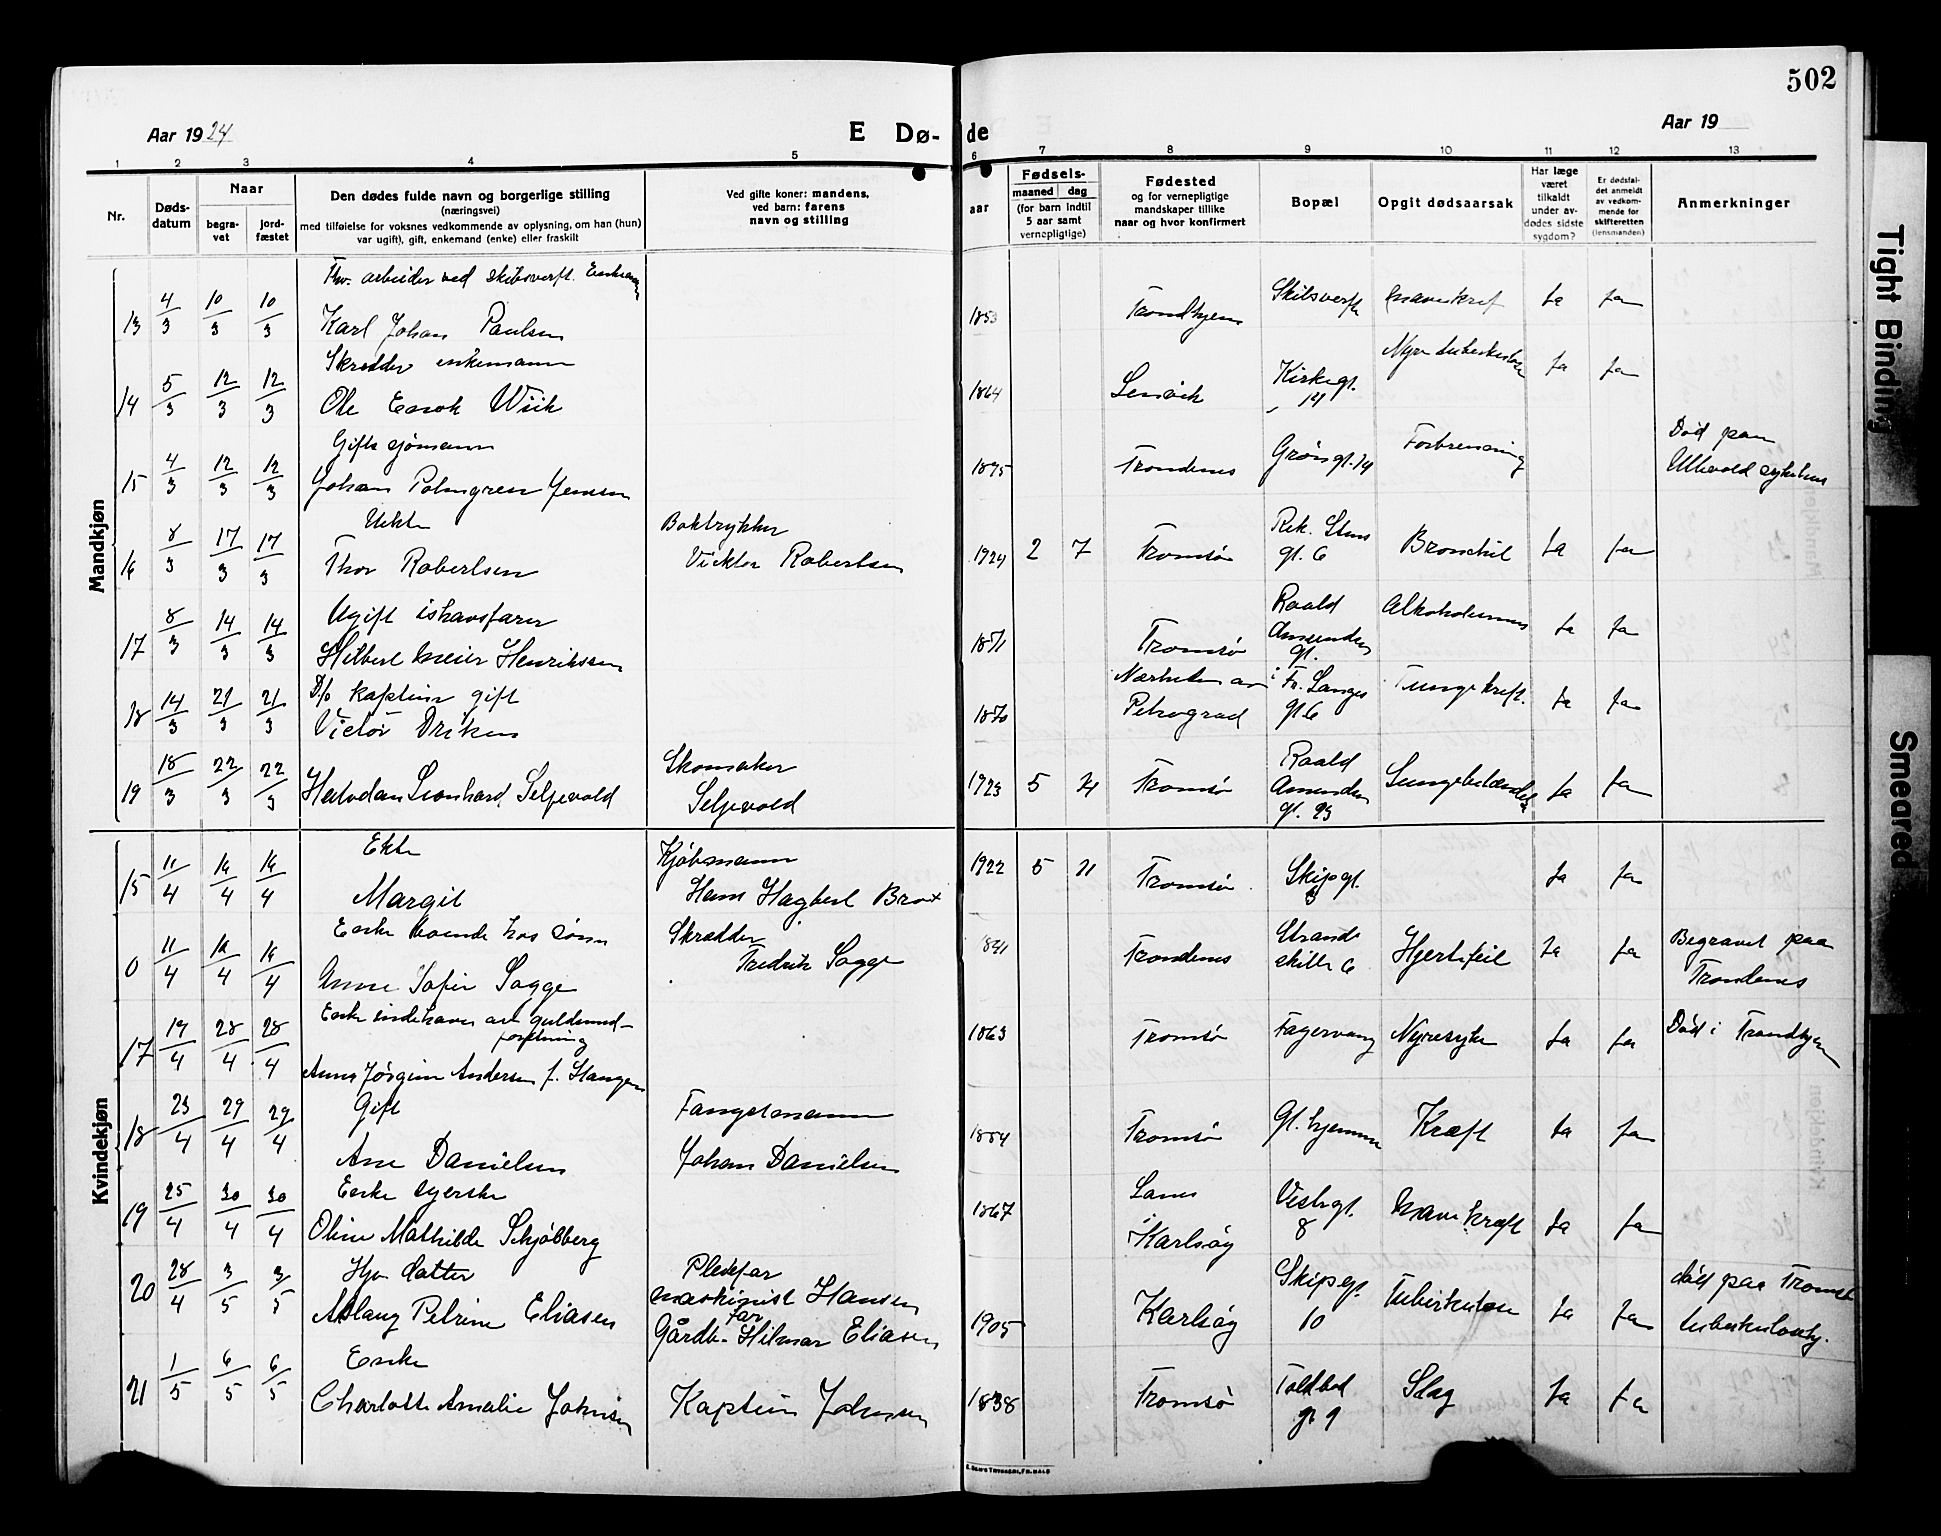 502
Aar 1924
E Dø-
de
Aar 19
1 2 3 4 5 6 7 8 9 10 11 12 13
Nr.
Døds-
datum
Naar
begra-
vet
jord-
fæstet
Den dødes fulde navn og borgerlige stilling
(næringsvei)
med tilføielse for voksnes vedkommende av oplysning, om han (hun)
var ugift), gift, enkemand (enke) eller fraskilt
Ved gifte koner: mandens,
ved barn: farens
navn og stilling
aar
Fødsels-
maaned dag
(for barn indtil
5 aar samt
vernepligtige)
Fødested
og for vernepligtige
mandskaper tillike
naar og hvor konfirmert
Bopæl
Opgit dødsaarsak
Har læge
været
tilkaldt
under av-
dødes sidste
sygdom?
Er dødsfal-
det anmeldt
av vedkom-
mende for
skifteretten
(lensmanden)
Anmerkninger
Mandkjøn
arbeider ved skibsverft.
13 4/3 10/3 10/3 Karl Johan Paulsen 1853 Trondhjem Skibsverft Mavekref Ja Ja
Skredder enkemann
14 5/3 12/3 12/3 Ole Enok Wiik 1864 Lenvik Kirkegt. 14 Nyre tuberkulose Ja Ja
Gift sjømann
15 4/3 12/3 12/3 Johan Palmgren Jensen 1895 Trondenes Grønsgt. 14 Forbrenning Død paa
Ullevold sykehus
Uekte Boktrykker
16 8/3 17/3 17/3 Thor Robertsen Vicktor Robertsen 1924 2 7 Tromsø Rek. Stens
gt. 6 Bronchit Ja Ja
Ugift ishavsfarer
17 8/3 14/3 14/3 Hilbert Meier Henrikssen 1871 Tromsø Roald
Amundsen
gt. Alkoholismus Ja Ja
D/s kaptein gift
18 14/3 21/3 21/3 Victor Eriksen 1870 Nærheten av
Petrograd Fr. Langes
gt 6 Tungekreft. Ja Ja
Skomaker
19 18/3 22/3 22/3 Halvdan Leonhard Seljevold Seljevold 1923 5 Tromsø Roald
Amundsen
gt. 23 Lungebetændelse Ja Ja
Kvindekjøn
Ekte Kjøbmann
15 11/4 16/4 16/4 Margit Hans Hagbert Brox 1922 5 Tromsø Skipgt. Ja Ja
Enke boende hos sønn Skrædder
0 11/4 16/4 16/4 Anne Sofie Sagge Fredrik Sagge 1841 Trondenes Strand-
skille 6 Hjertefeil Ja Ja Begravet paa
Trondenes
Enke indehaver av guldsmed-
forretning
17 19/4 28/4 28/4 Anna Jørgine Andersen f. Haugen 1863 Tromsø Fagervang Nyresyke Ja Ja Død i Trondhjem
Gift Fangstmann
18 23/4 29/4 29/4 Ane Danielsen Johan Danielsen 1854 Tromsø Gl. hjemme Kræft Ja Ja
Enke syerske
19 25/4 30/4 30/4 Oline Mathilde Skjølberg 1867 Lanes
Karlsøy Vestregt.
8 Mavekræft Ja Ja
Hjv. datter Pleiefar
maskinist Hansen
20 28/4 3/5 3/5 Aslaug Petrine Eliasen Far
Gårdb. Hilmar Eliasen 1905 Karlsøy Skipsgt.
10 Tuberkulose Ja Ja død paa Tromsø
tuberkulosehj.
Enke
21 1/5 6/5 6/5 Charlotte Amalie Johnsen Kaptein Johnsen 1838 Tromsø Toldbod
gt 9 Slag Ja Ja
E. SEM'S TRYKKERI, FR. HALD
Tight Binding
Smeared